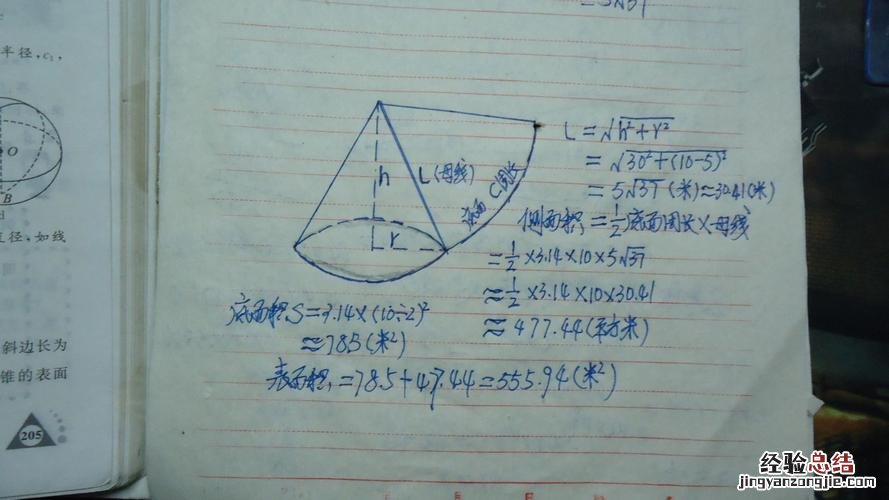 半径,c₁,
O
B
直径,如线
斜边长为
锥的表面
205
=5√37
h
L(母线)
底面C周长
r
L=√(h²+r²)
=√(30²+(10-5)²)
=5√37(米)≈30.41(米)
侧面积=½底面周长×母线
=½×3.14×10×5√37
≈½×3.14×10×30.41
≈477.44(平方米)
底面积S=3.14×(10÷2)²
≈78.5(米²)
表面积=78.5+477.44=555.94(米²)
经验总结
jingyanzongjie.com